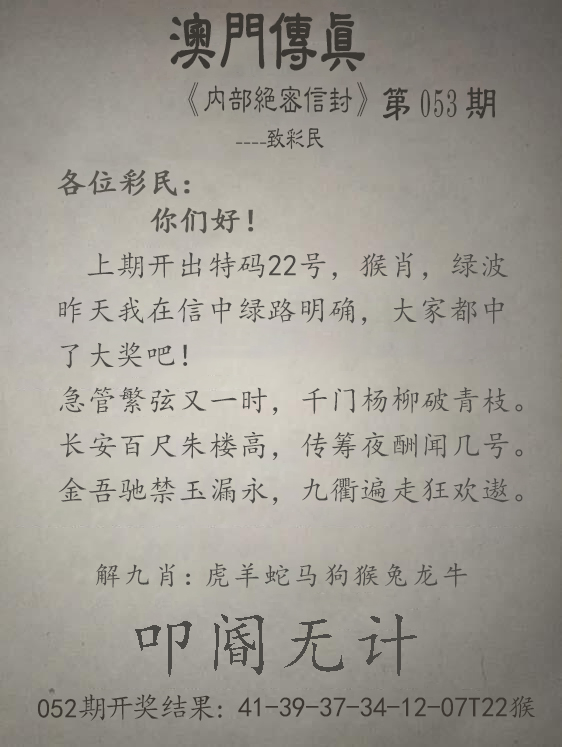 澳門傳眞
《内部絕密信封》第053期
----致彩民
各位彩民：
你们好！
上期开出特码22号，猴肖，绿波
昨天我在信中绿路明确，大家都中
了大奖吧！
急管繁弦又一时，千门杨柳破青枝。
长安百尺朱楼高，传筹夜酬闻几号。
金吾驰禁玉漏永，九衢遍走狂欢遨。
解九肖：虎羊蛇马狗猴兔龙牛
叩阍无计
052期开奖结果：41-39-37-34-12-07T22猴